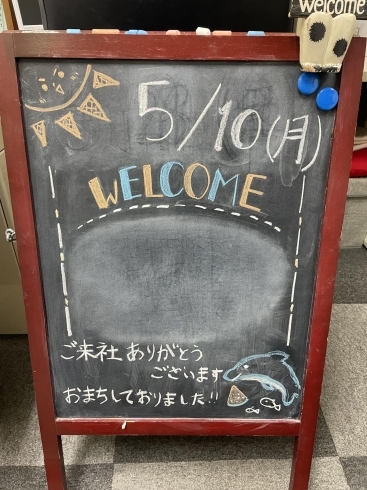 welcome
5/10(月)
WELCOME
ご来社ありがとう
ございます
おまちしておりました!!